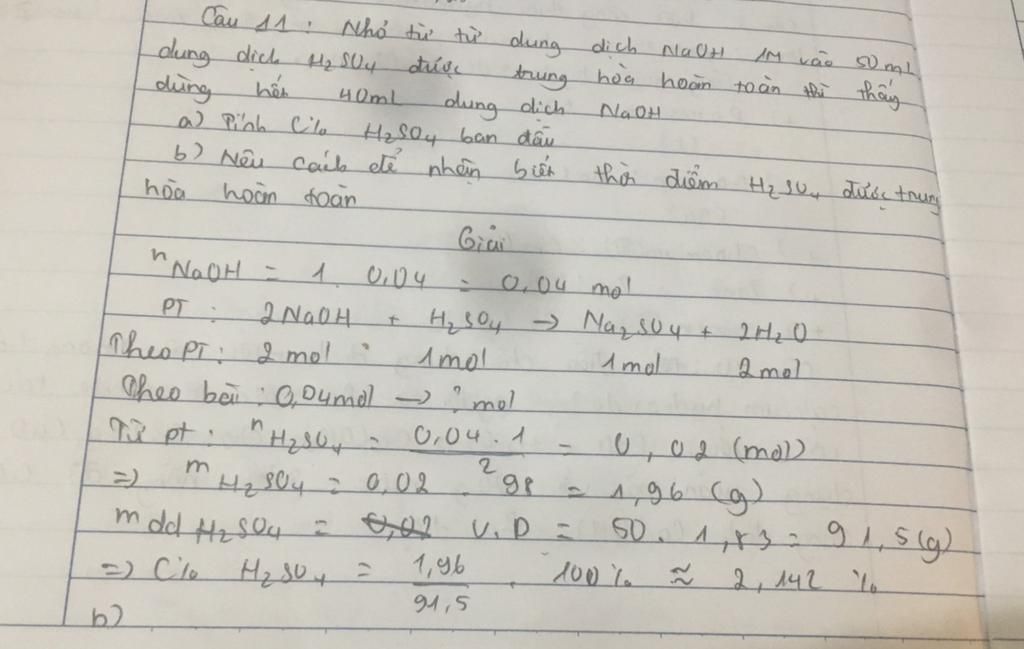 Câu 11: Nhỏ từ từ dung dịch NaOH 1M vào 50 ml
dung dịch H₂SO₄ được trung hòa hoàn toàn thì thấy
dùng hết 40ml dung dịch NaOH
a) Tính C% H₂SO₄ ban đầu
b) Nêu cách để nhận biết thời điểm H₂SO₄ được trung
hòa hoàn toàn
Giải
nNaOH = 1. 0,04 = 0,04 mol
PT: 2NaOH + H₂SO₄ → Na₂SO₄ + 2H₂O
Theo PT: 2 mol : 1mol 1mol 2mol
Theo bài: 0,04mol → ? mol
Từ pt: nH₂SO₄ = 0,04.1/2 = 0,02 (mol)
=> mH₂SO₄ = 0,02 . 98 = 1,96 (g)
mdd H₂SO₄ = V.D = 50. 1,83 = 91,5 (g)
=> C% H₂SO₄ = 1,96/91,5 . 100% ≈ 2,142 %
b)